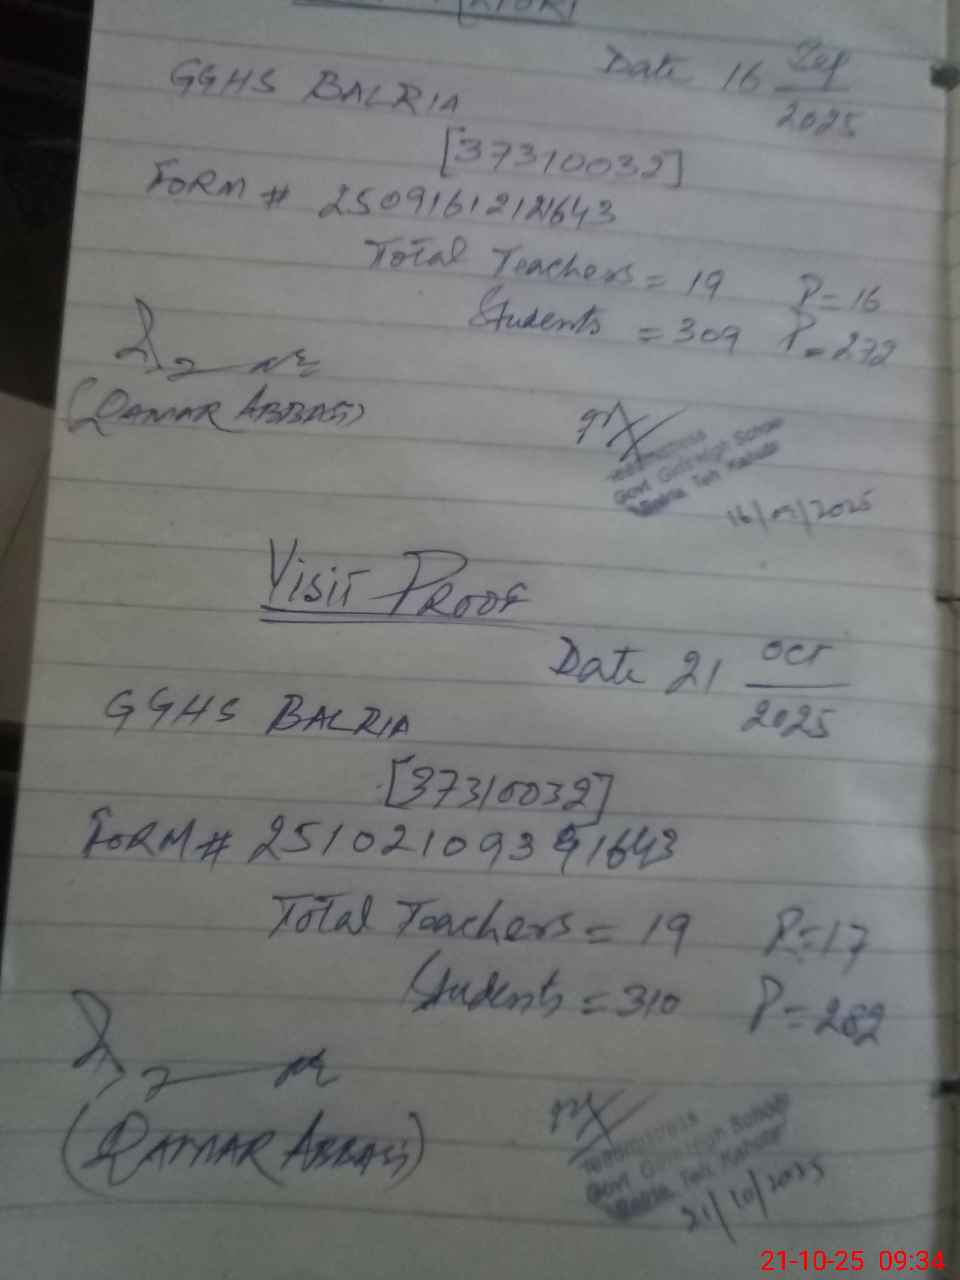 Date 16 Sep
2025
GGHS BALRIA
[37310032]
FORM # 25091612121643
Total Teachers = 19 P = 16
Students = 309 P = 272
(QAMAR ABBAS)
Headmistress
Govt Girls High School
Balria Teh Kahuta
16/09/2025
Visit PROOF
Date 21 Oct
2025
GGHS BALRIA
[37310032]
FORM # 2510210931643
Total Teachers = 19 P = 17
Students = 310 P = 282
(QAMAR ABBAS)
Headmistress
Govt Girls High School
Balria Teh Kahuta
21/10/2025
21-10-25 09:34